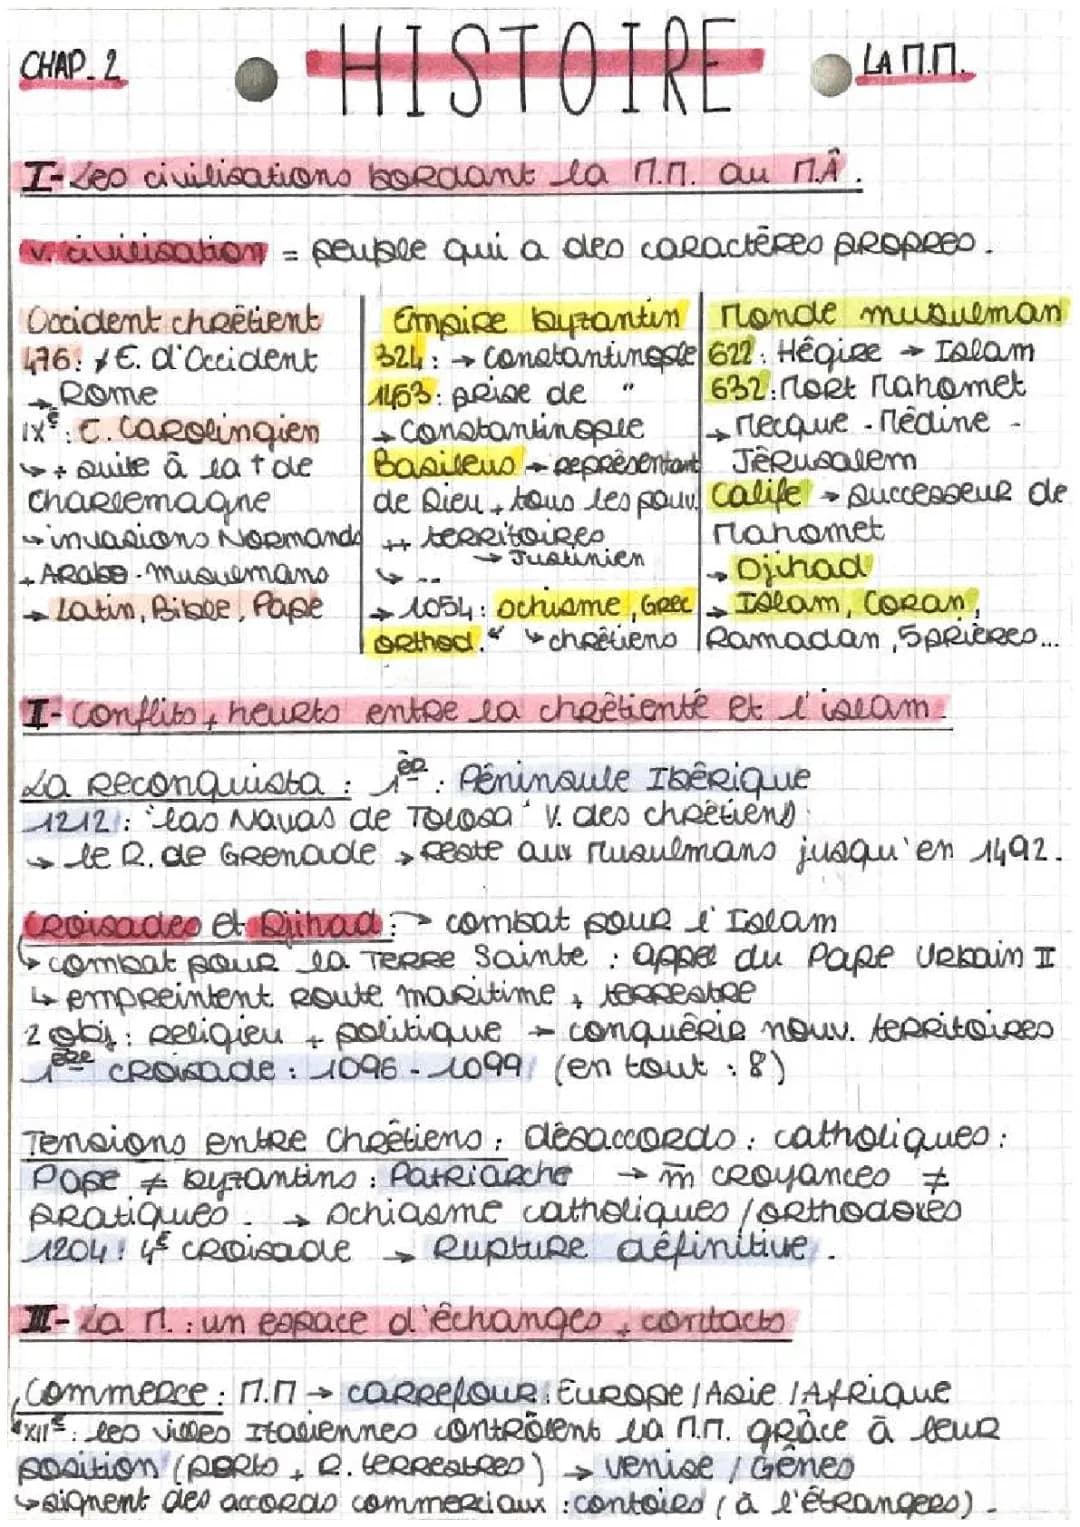 CHAP. 2
HISTOIRE
LA M.M.
I- Les civilisations bordant la M.M. au M.Â.
v. civilisation = peuple qui a des caractères propres.
Occident chrétient
476: E. d'Occident
→ Rome
IXe: E. Carolingien
↳ + suite à la † de
Charlemagne
→ invasions Normands
+ Arabo-musulmans
→ Latin, Bible, Pape
Empire byzantin
324: → Constantinople
1453: prise de "
→ Constantinople
Basileus → représentant
de Dieu, tous les pouv.
++ territoires
→ Justinien
↳ --
→ 1054: schisme, Grec
orthod. ↳ chrétiens
Monde musulman
622: Hégire → Islam
632: Mort Mahomet
→ Mecque - Médine -
Jérusalem
Calife → successeur de
Mahomet
→ Djihad
→ Islam, Coran,
Ramadan, 5 prières...
I- Conflits, heurts entre la chrétienté et l'islam.
La Reconquista : 1ère : Péninsule Ibérique
1212 : "las Navas de Tolosa" V. des chrétiens
→ le R. de Grenade → reste aux musulmans jusqu'en 1492.
Croisades et Djihad : → combat pour l'Islam
↳ combat pour la Terre Sainte : appel du Pape Urbain II
↳ empreintent route maritime + terrestre
2 obj : religieu + politique → conquérir nouv. territoires
1ère croisade : 1096 - 1099 (en tout : 8)
Tensions entre Chrétiens : désaccords : catholiques :
Pape ≠ byzantins : Patriarche → m̄ croyances ≠
pratiques. → schiasme catholiques / orthodoxes
1204 : 4e croisade → Rupture définitive.
III- La M. : un espace d'échanges, contacts
Commerce : M.M → carrefour : Europe / Asie / Afrique
XIIe : les villes Italiennes contrôlent la M.M. grâce à leur
position (ports + R. terrestres) → Venise / Gênes
↳ signent des accords commerciaux : contoirs (à l'étrangers).